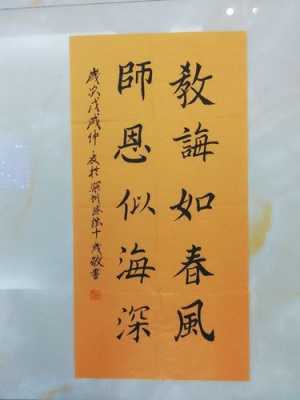 教誨如春風
師恩似海深
歲次戊戌仲夏於
敬書